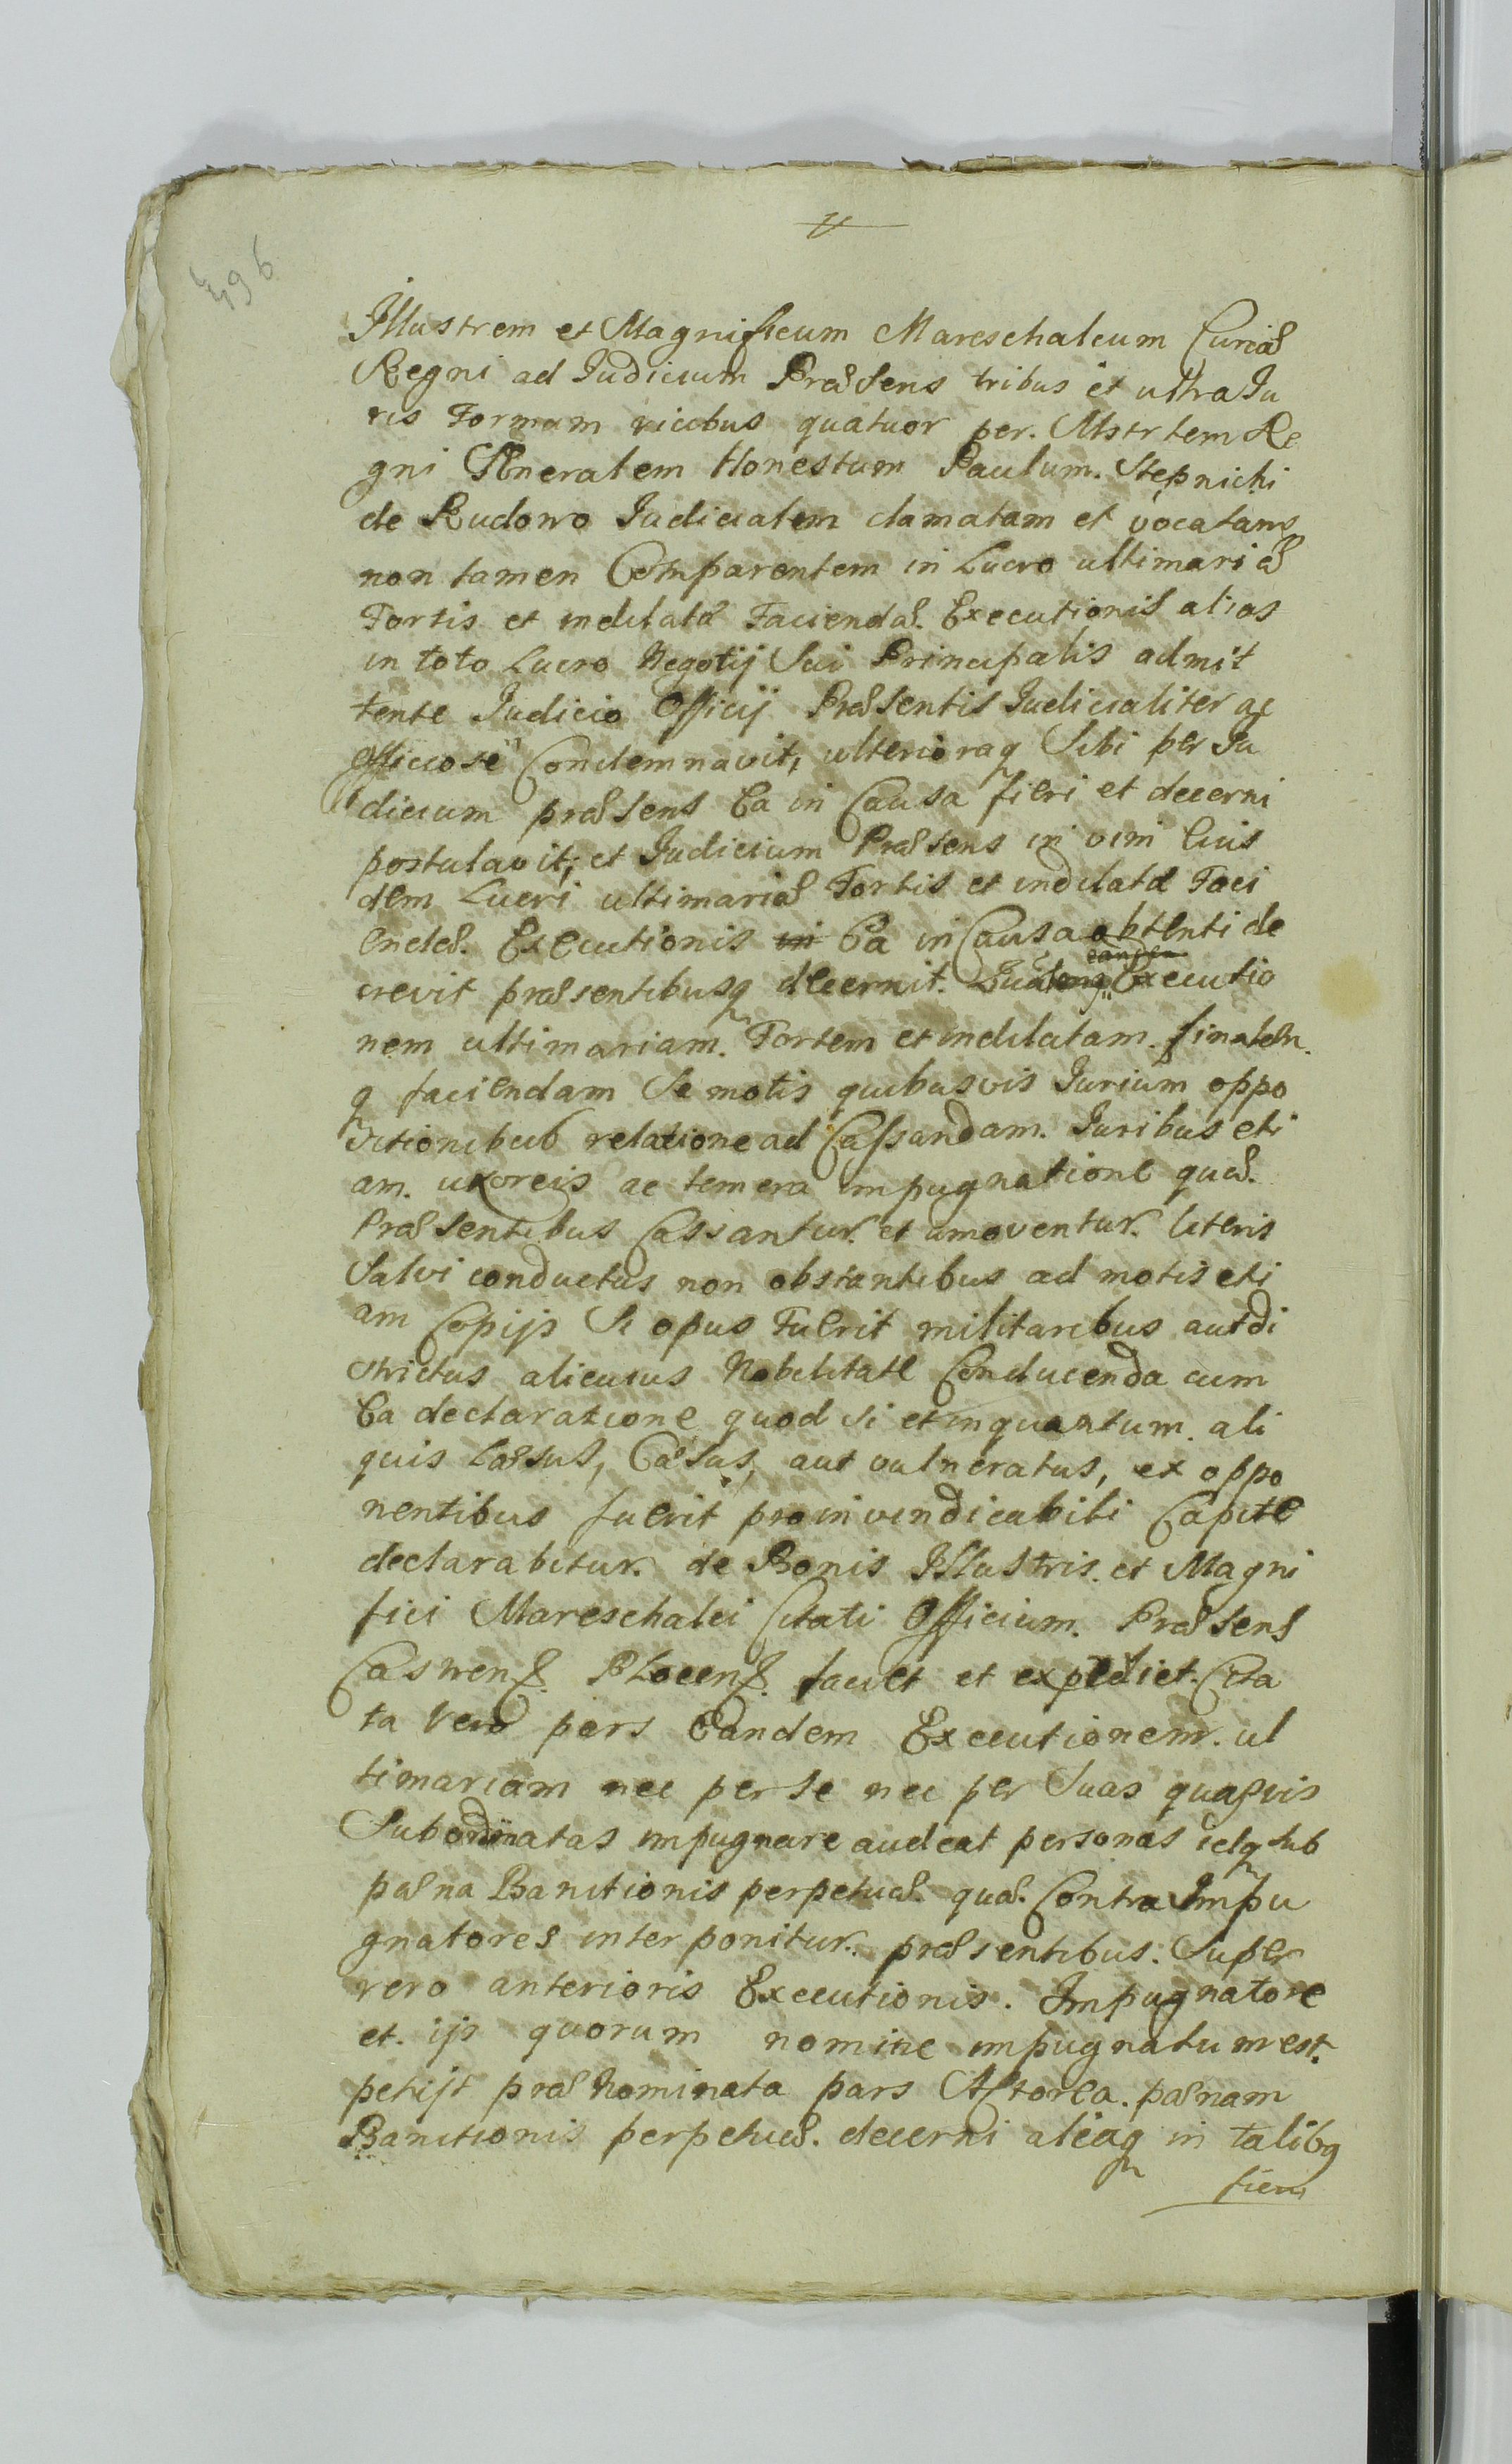 496
Illustrem et Magnificum Mareschalcum Curiæ
Regni ad Judicium Præsens tribus et ultra Ju
ris Formam vicibus quatuor per. Mstrlem Re
gni Gñneralem Honestum Paulum. Stępnicki
de Rudowo Judicialem clamatam et vocatam
non tamen Comparentem in Lucro ultimariæ
Fortis et indilatæ Faciendæ. Executionis alias
in toto Lucro Negotij Sui Principalis admit
tente Judicio Officij Præsentis Judicialiter ac
officiose Condemnavit, ulterioraq Sibi per Ju
dicium præsens Ea in Causa fieri et decerni
postulavit; et Judicium Præsens in vim Eius
dem Lucri ultimariæ Fortis et indilatæ Faci
endæ. Executionis in Ea in Causa obtenti de
crevit præsentibusq decernit. Executio
nem ultimariam. Fortem et indilatam. finalem.
q faciendam Se motis quibusvis Jurium oppo
sitionibus relatione ad Cassandam. Juribus eti
am. uxoreis ac temera impugnatione quæ.
Præsentibus Cassantur. et amoventur. literis
Salvi conductus non obstantibus ad motis eti
am Copijs Si opus Fuerit militaribus aut di
strictus alicuius Nobilitate Conducenda cum
Ea declaratione quod si et inquantum. ali
quis Læsus, Cæsus, aut vulneratus, ex oppo
nentibus fuerit pro invindicabili Capite
declarabitur. de Bonis Illustris. et Magni
fici Mareschalci Citati Officium. Præsens
Castrense. Plocense. faciet et expediet. Cita
ta Vero pars Eandem Executionem. ul
timariam nec per se nec per Suas quasvis
Subordinatas impugnare audeat personas idq sub
pæna Banitionis perpetuæ. quæ. Contra Impu
gnatores interponitur. præsentibus. Super
vero anterioris Executionis. Impugnatore
et. ijs quorum nomine impugnatum est.
petijt prænominata pars Actorea. pænam
Banitionis perpetuæ. decerni aliaq in talibq
fieri